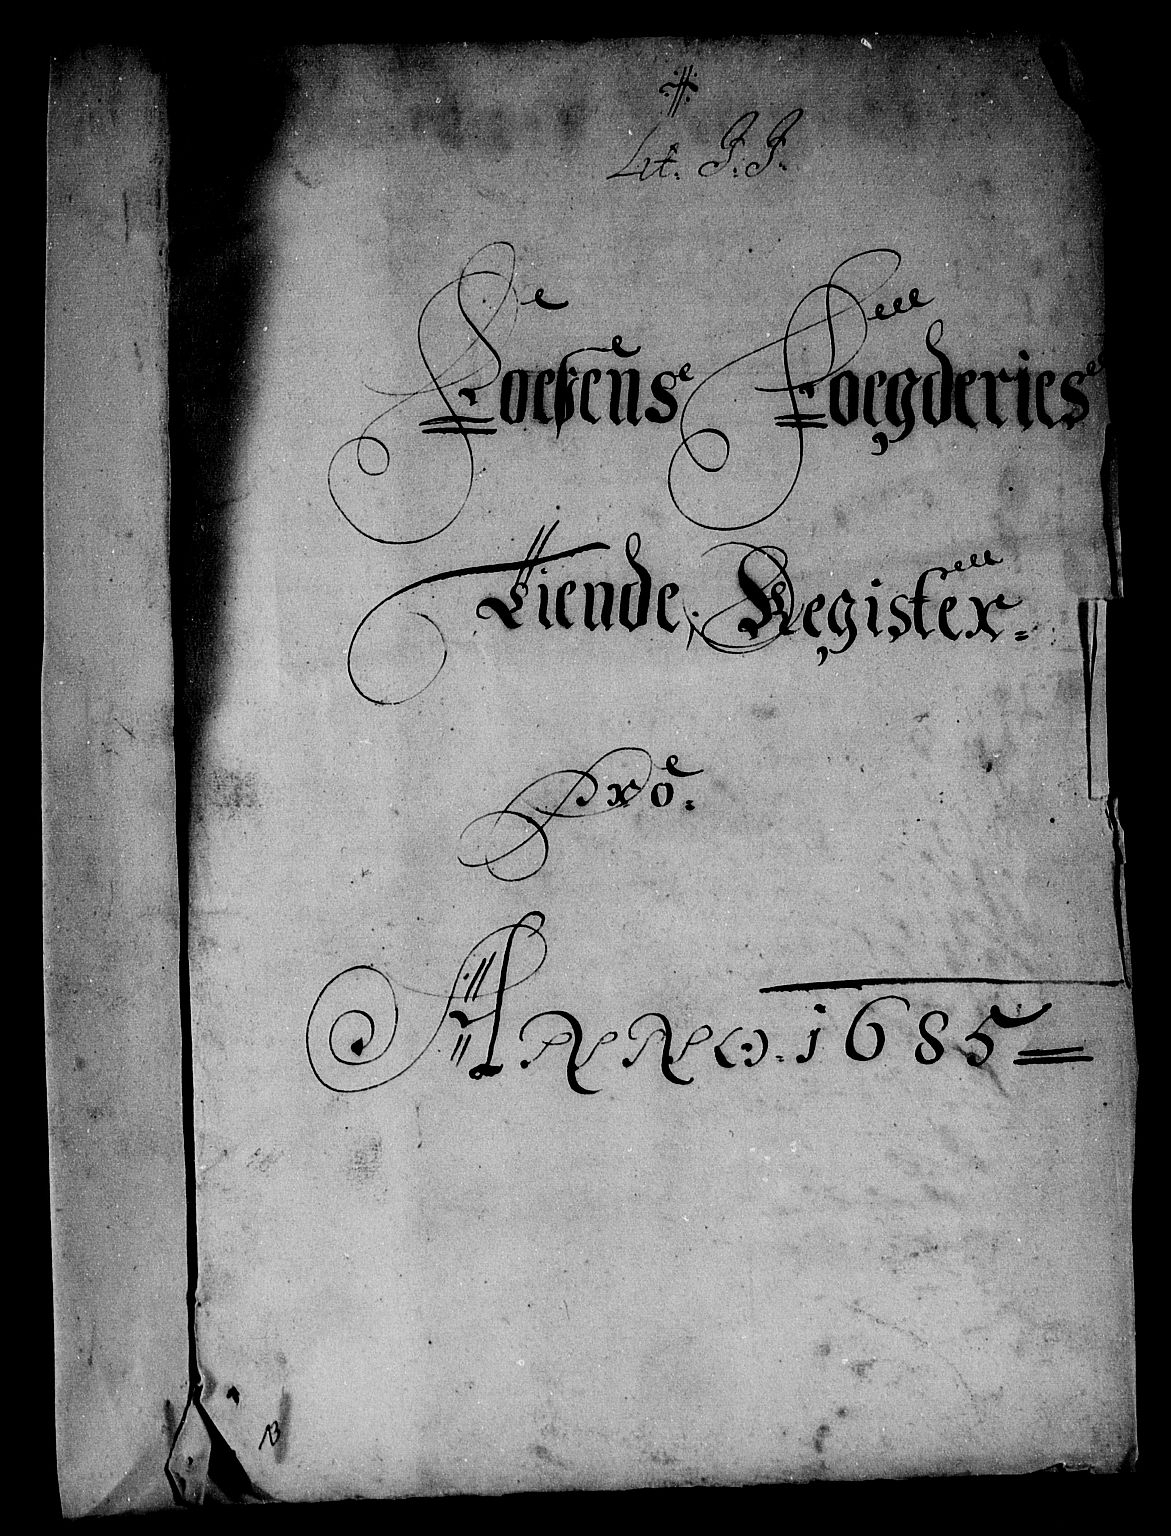 Lit. J:J.
Foesens Foegderies
Tiende Register
Pro
ANNO 1685